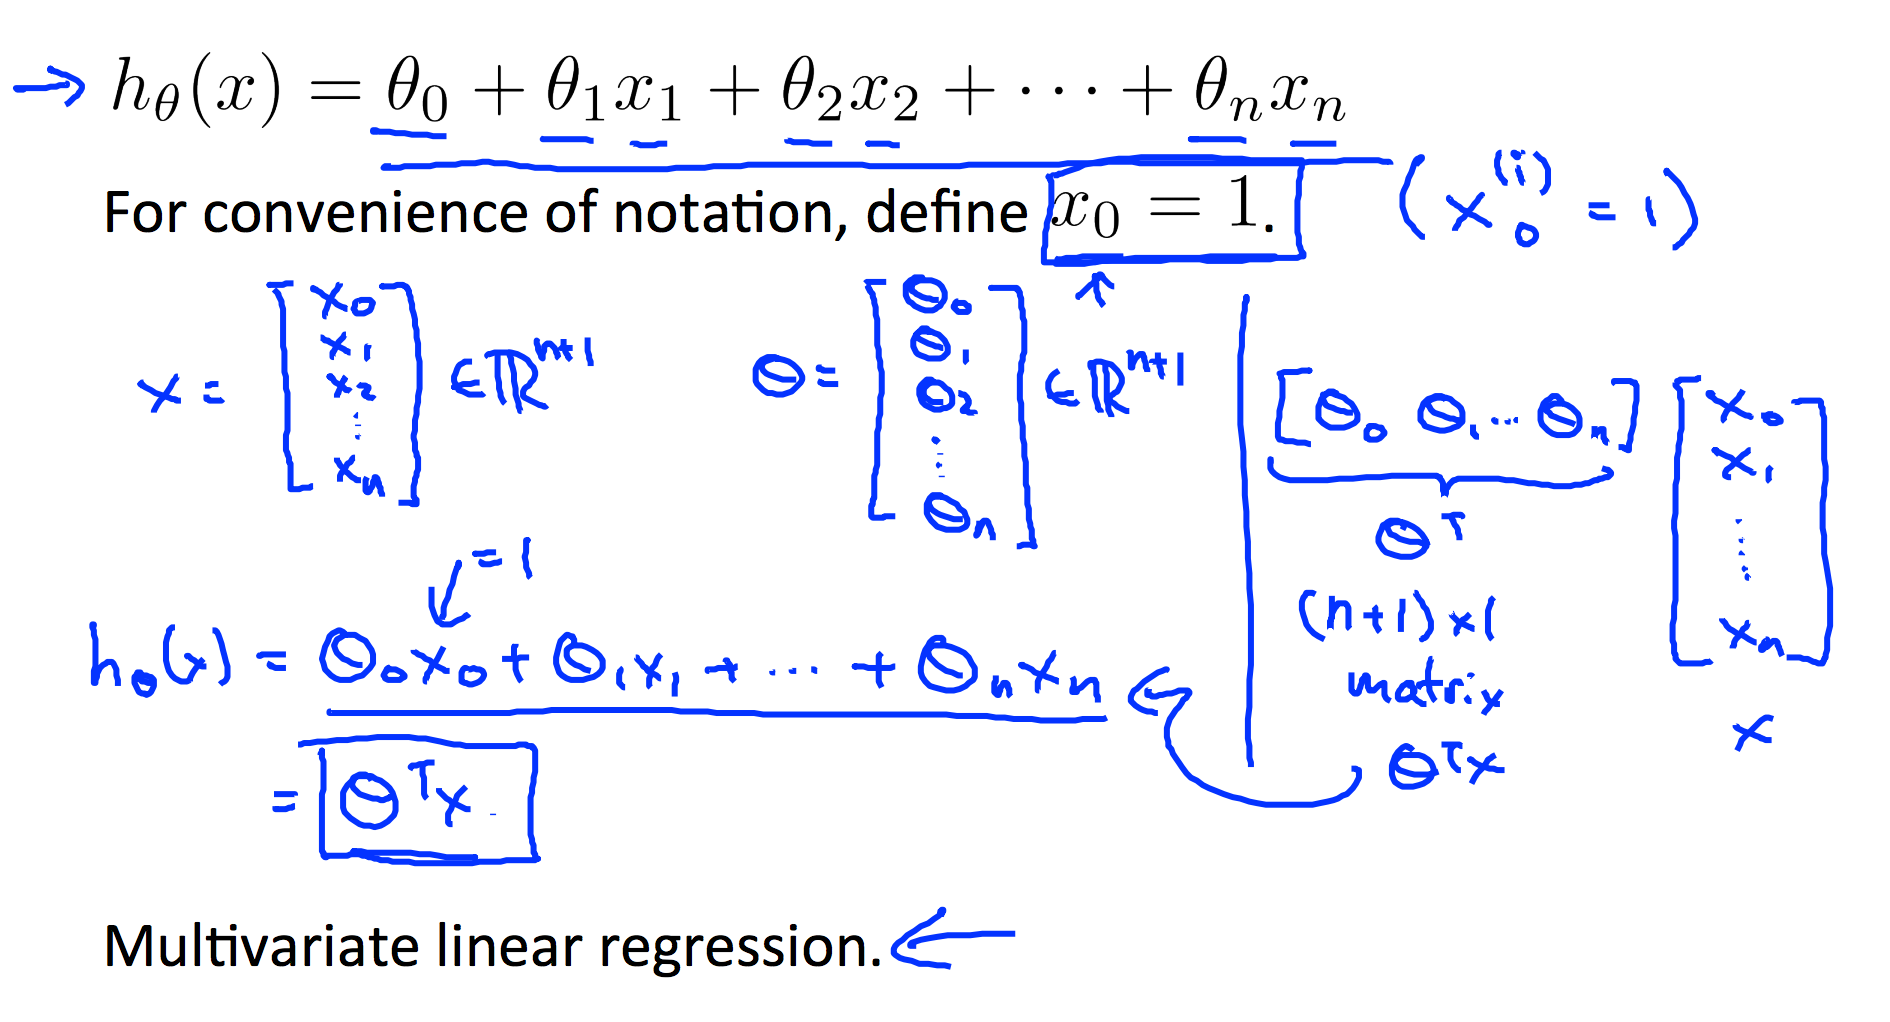 → hθ(x) = θ₀ + θ₁x₁ + θ₂x₂ + ⋯ + θₙxₙ
For convenience of notation, define x₀ = 1. (x₀⁽ⁱ⁾ = 1)
x = [x₀ x₁ x₂ ⋮ xₙ] ∈ ℝⁿ⁺¹
θ = [θ₀ θ₁ θ₂ ⋮ θₙ] ∈ ℝⁿ⁺¹
[θ₀ θ₁ ⋯ θₙ] [x₀ x₁ ⋮ xₙ]
θᵀ
(n+1) × 1
matrix
x
θᵀx
= 1
hθ(x) = θ₀x₀ + θ₁x₁ + ⋯ + θₙxₙ
= θᵀx
Multivariate linear regression. ←